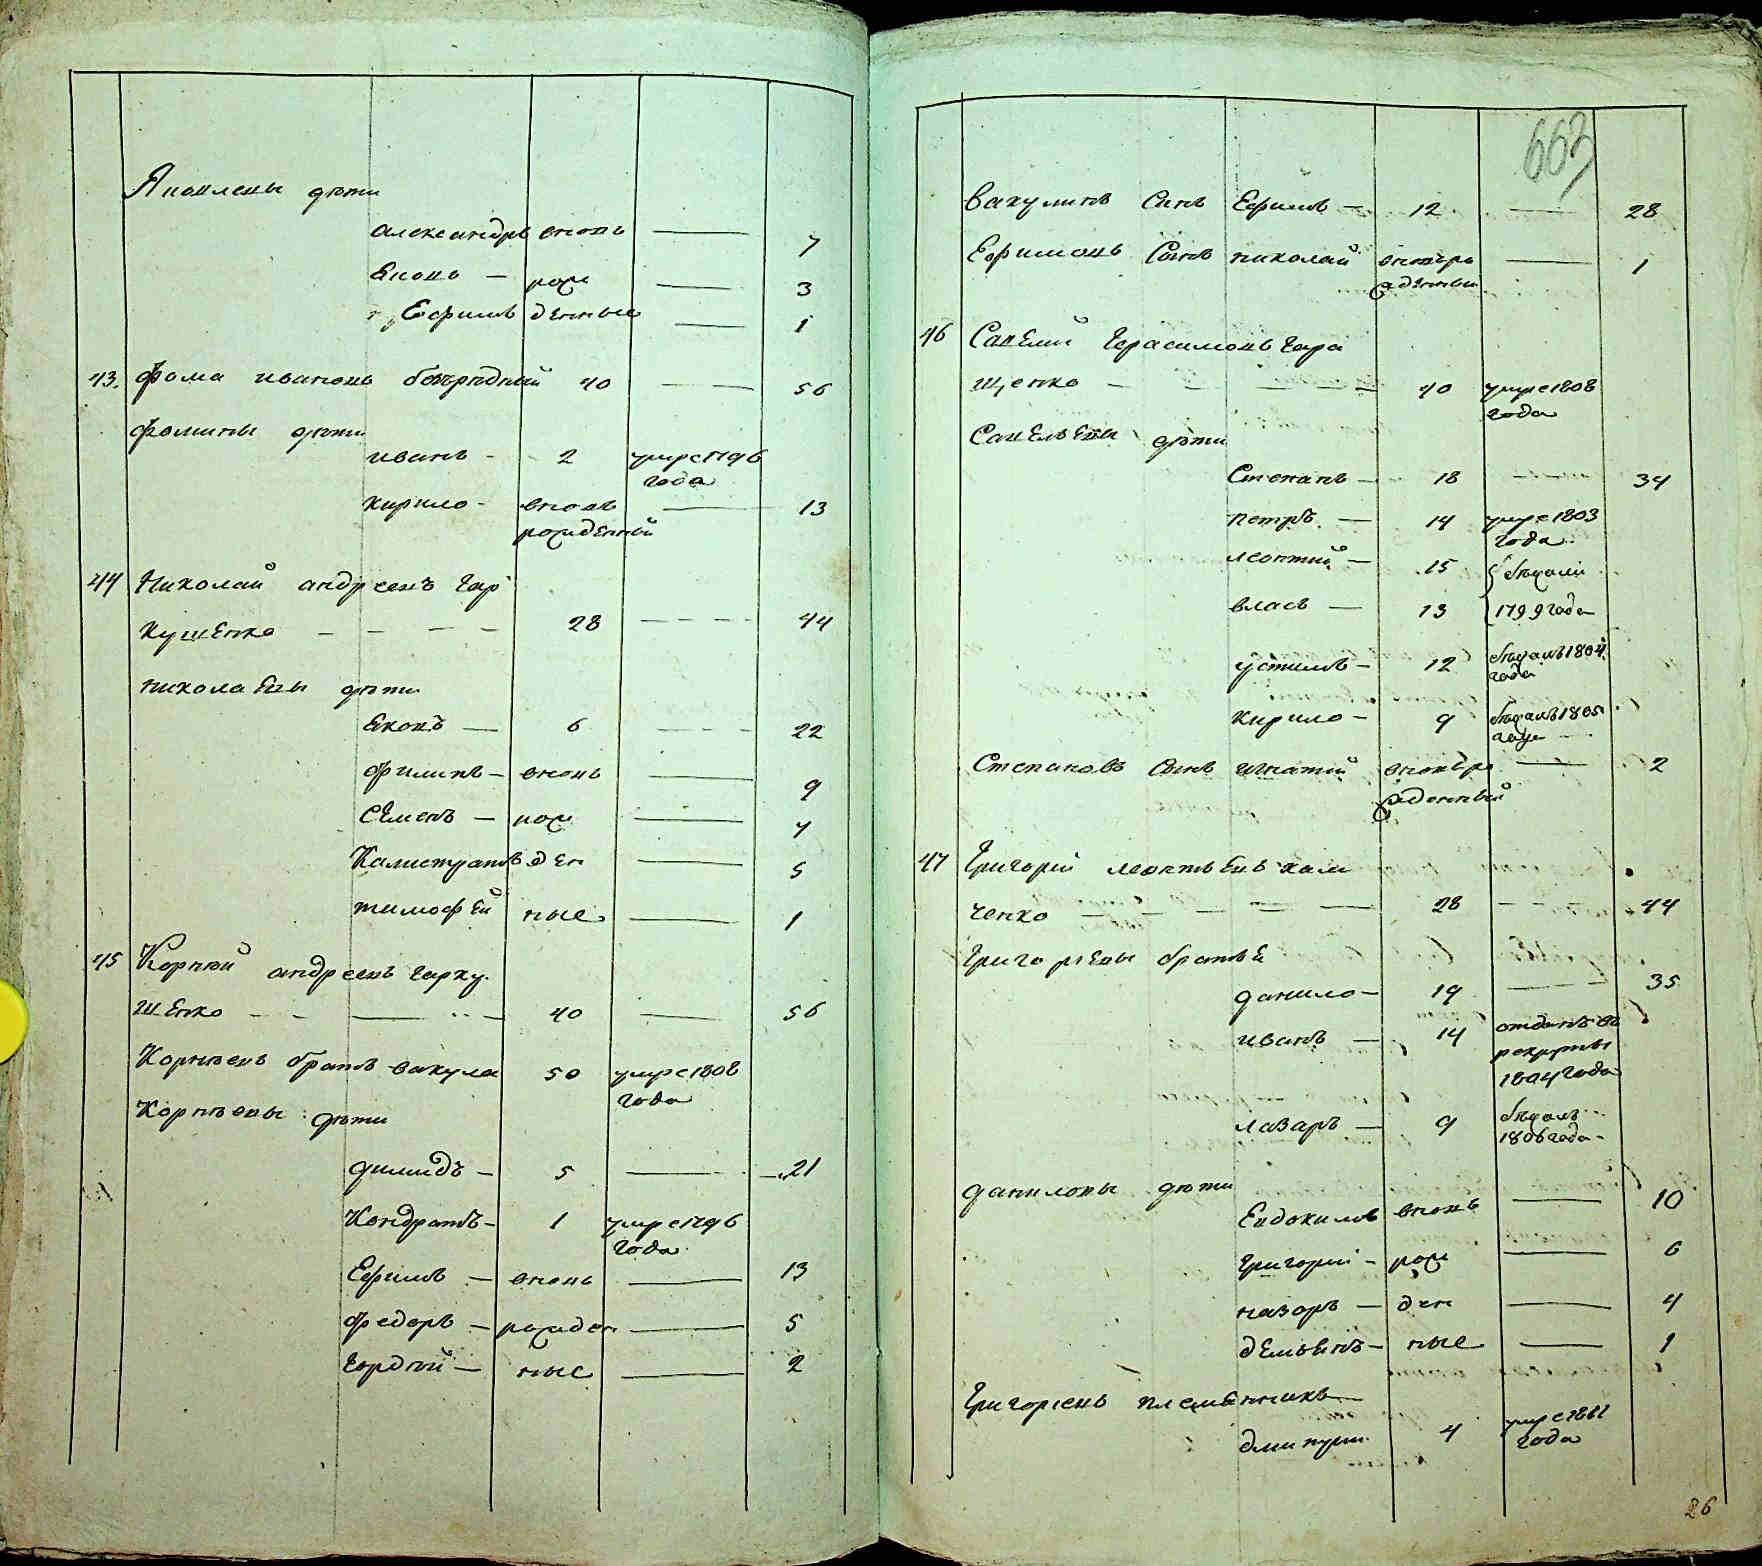 Яковлевы дети
Александръ вновь — 7
Яковъ — рож — 3
Ефимъ денные — 1
43. Фома Ивановъ 40 — 56
Фомины дети
Иванъ - 2 умре 1796
года
Кирило - вновь — 13
рожденный
44 Николай Андреевъ Гар
кушенко — — — — 28 — — — 44
Николаевы дети
Яковъ — 6 — — — 22
Филипъ — вновь — 9
Семенъ — рож — 7
Калистратъ ден — 5
Тимофей ные — 1
45 Корней Андреевъ Гарку
шенко — — — — 40 — 56
Корнеевъ братъ Вакула 50 умре 1808
года
Корнеевы дети
Демидъ — 5 — 21
Кондратъ — 1 умре 1796
года
Ефимъ — вновь — 13
Федоръ — рожден — 5
Гордей — ные — 2
663
Вакулинъ сынъ Ефимъ — 12 — 28
Ефимовъ сынъ Николай вновьро — 1
жденный
46 Савелий Герасимовъ Гера
щенко — — — — 40 умре 1808
года
Савельевы дети
Степанъ — 18 — — — 34
Петръ — 14 умре 1803
года
Леонтий — 15 бежали
Власъ — 13 1799 года
Устимъ — 12 бежалъ 1804
года
Кирило — 9 бежалъ 1805
году
Степановъ сынъ Игнатий вновьро — 2
жденный
47 Григорий Леонтьевъ Хам
ченко — — — — 28 — — 44
Григорьевы братья
Данило — 19 — — — 35
Иванъ — 14 отданъ въ
рекруты
1804 года
Лазаръ — 9 бежалъ
1806 года
Даниловы дети
Евдокимъ вновь — 10
Григорий — рож — 6
Назаръ — ден — 4
Демьянъ — ные — 1
Григорьевъ племянникъ
Дмитрий 4 умре 1811
года
26